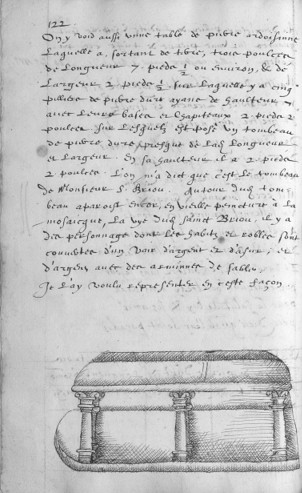 122
On y void aussi une table de pierre ardoisinne
laquelle a, sortant de terre, trois poulces
de longueur 7 pieds 1/2 ou environ, & de
largeur 2 pieds 1/2, sur laquelle y a cinq
pilliers de pierre dure ayans de haulteur
avec leurs bases et chapiteaux 2 pieds 2
poulces sur lesquels est posé un tombeau
de pierre dure, presque de lad. longueur
et largeur. En sa haulteur il a 2 pieds
2 poulces. L'on m'a dict que c'est le tombeau
de Monsieur S. Briou. Autour dud. tom-
beau aparoist encor, en vieille peincture à la
mosaicque, la vye dud. sainct Briou, il y a
des personnages dont les habitz et rolles sont
couvertes d'un d'argent et d'azur, et
d'argent avec des armines de sable.
Je l'ay voulu representer en ceste façon.